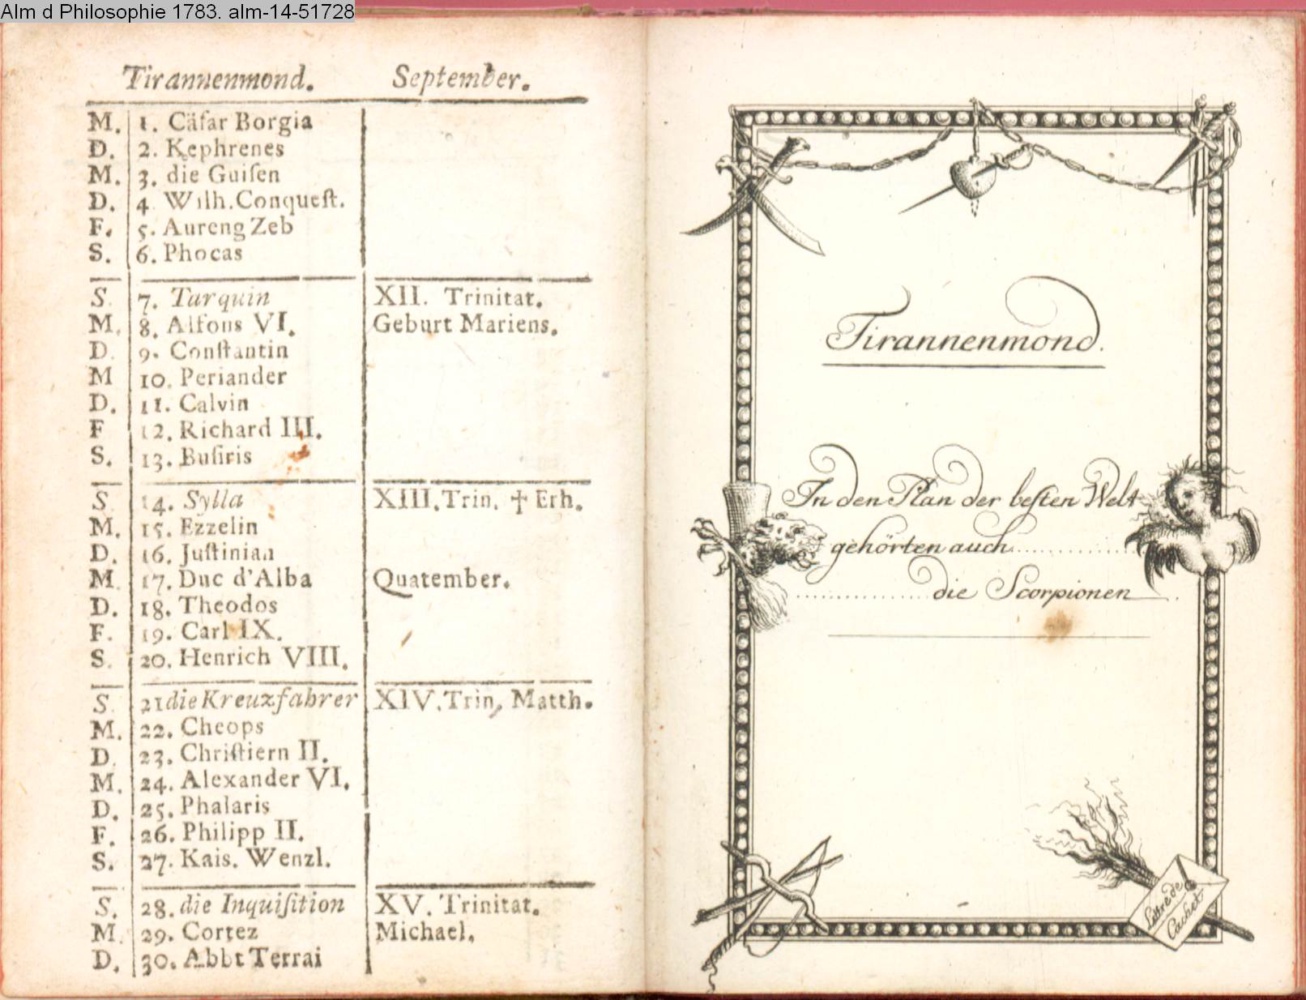 Alm d Philosophie 1783. alm-14-51728
Tirannenmond. September.
M. 1. Cäſar Borgia
D. 2. Kephrenes
M. 3. die Guiſen
D. 4 Wilh. Conqueſt.
F. 5. Aureng Zeb
S. 6. Phocas
S. 7. Tarquin XII. Trinitat.
M. 8. Alfons VI. Geburt Mariens.
D. 9. Conſtantin
M 10. Periander
D. 11. Calvin
F 12. Richard III.
S. 13. Buſiris
S 14. Sylla XIII. Trin. ✝ Erh.
M. 15. Ezzelin
D. 16. Juſtinian
M. 17. Duc d'Alba Quatember.
D. 18. Theodos
F. 19. Carl IX.
S. 20. Henrich VIII.
S 21 die Kreuzfahrer XIV. Trin. Matth.
M. 22. Cheops
D 23. Chriſtiern II.
M. 24. Alexander VI.
D. 25. Phalaris
F. 26. Philipp II.
S. 27. Kais. Wenzl.
S. 28. die Inquiſition XV. Trinitat.
M. 29. Cortez Michael.
D. 30. Abbt Terrai
Tirannenmond.
In den Plan der beſten Welt
gehörten auch..............
................die Scorpionen
Lettre de
Cachet